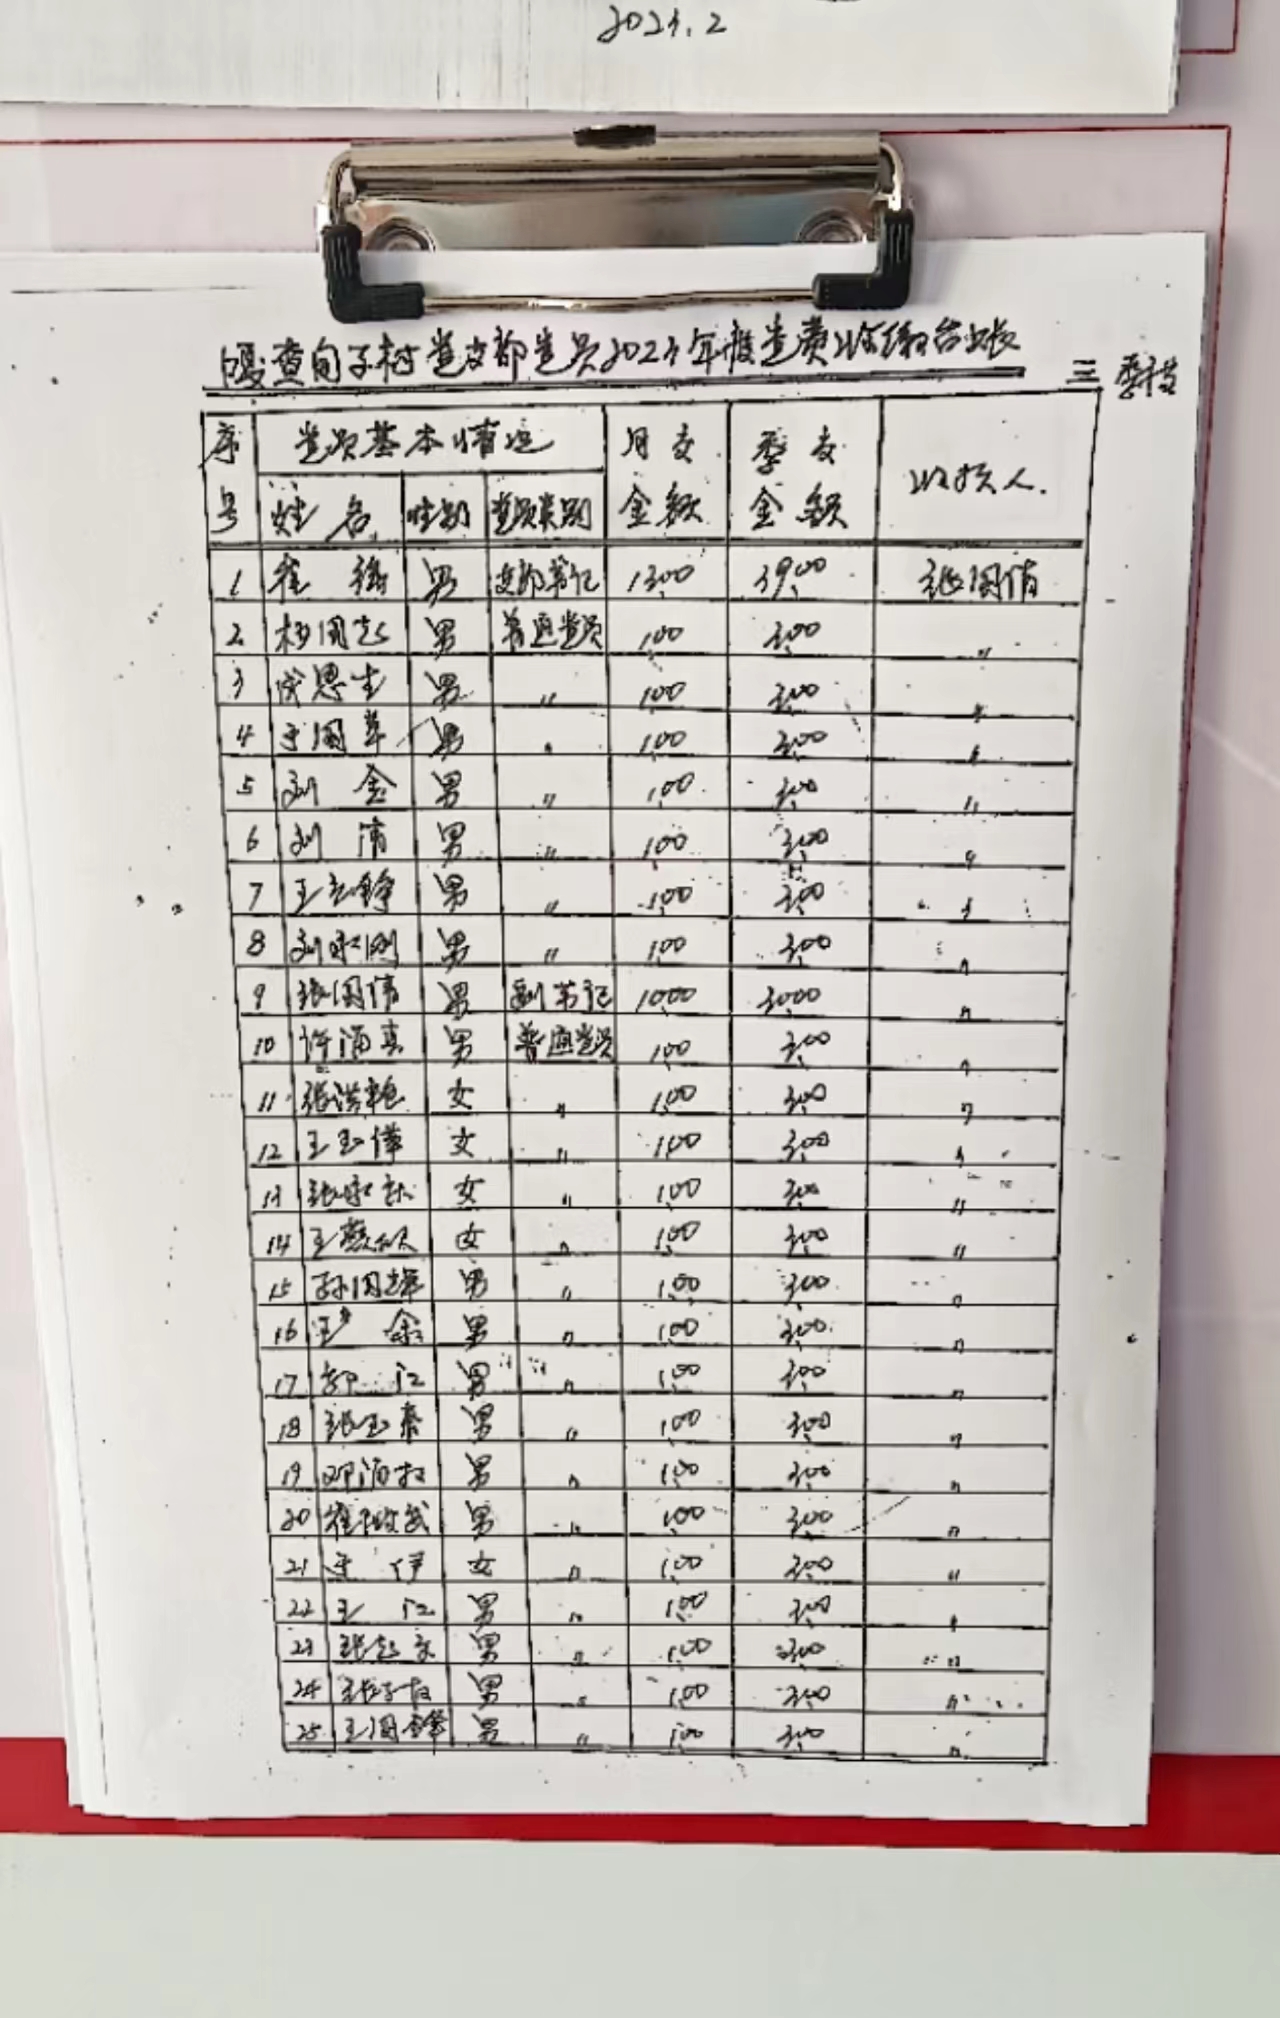 党支部党员2021年度党费收缴台账
三季度
序号 党员基本情况 月交金额 季交金额 收款人
姓名 性别 党员类别
1 崔 男 支部书记 13.00 39.00 张国侑
2 杨国志 男 普通党员 1.00 3.00 〃
3 思生 男 〃 1.00 3.00 〃
4 于国苹 男 〃 1.00 3.00 〃
5 刘金 男 〃 1.00 3.00 〃
6 刘清 男 〃 1.00 3.00 〃
7 王志铮 男 〃 1.00 3.00 〃
8 刘 男 〃 1.00 3.00 〃
9 张国侑 男 副书记 10.00 30.00 〃
10 许海 男 普通党员 1.00 3.00 〃
11 张洪艳 女 〃 1.00 3.00 〃
12 王玉 女 〃 1.00 3.00 〃
13 张 女 〃 1.00 3.00 〃
14 王 女 〃 1.00 3.00 〃
15 孙国 男 〃 1.00 3.00 〃
16 男 〃 1.00 3.00 〃
17 江 男 〃 1.00 3.00 〃
18 张玉春 男 〃 1.00 3.00 〃
19 邓海 男 〃 1.00 3.00 〃
20 崔 武 男 〃 1.00 3.00 〃
21 于伊 女 〃 1.00 3.00 〃
22 王江 男 〃 1.00 3.00 〃
23 张志 男 〃 1.00 3.00 〃
24 张子 男 〃 1.00 3.00 〃
25 王国锋 男 〃 1.00 3.00 〃